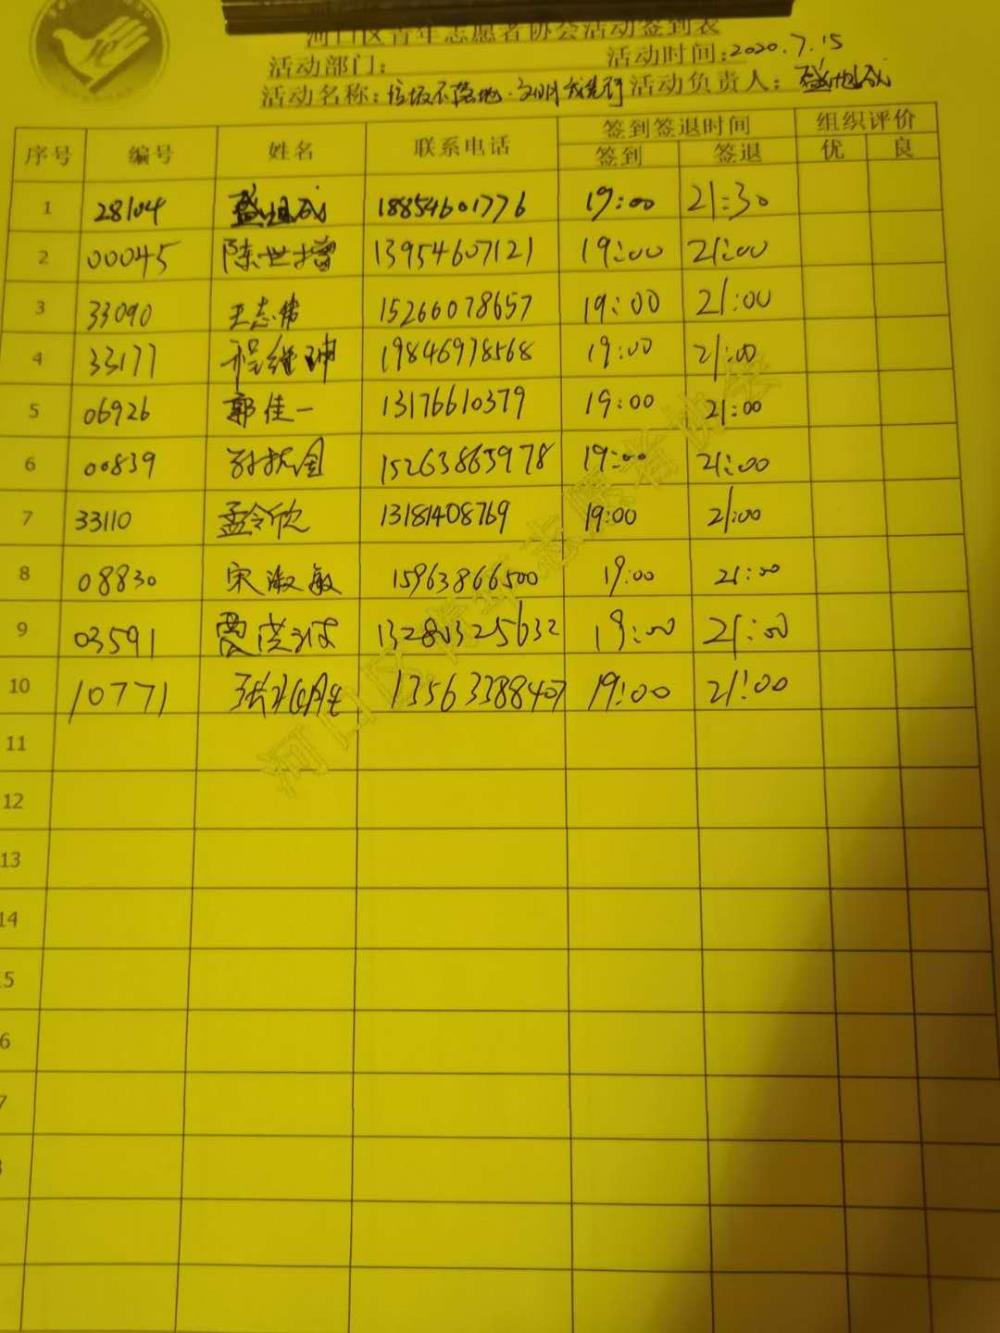 河口区青年志愿者协会活动签到表
活动部门： 活动时间：2020.7.15
活动名称：垃圾不落地·文明我先行 活动负责人：
序号 编号 姓名 联系电话 签到签退时间 组织评价
签到 签退 优 良
1 28104 18854601776 19:00 21:30
2 00045 陈世增 13954607121 19:00 21:00
3 33090 王志伟 15266078657 19:00 21:00
4 33177 程继坤 19846978568 19:00 21:00
5 06926 郭佳一 13176610379 19:00 21:00
6 00839 15263865978 19:00 21:00
7 33110 孟令欣 13181408769 19:00 21:00
8 08830 宋淑敏 15963866500 19:00 21:00
9 03591 13280325632 19:00 21:00
10 10771 13563388407 19:00 21:00
11
12
13
14
河口区青年志愿者协会